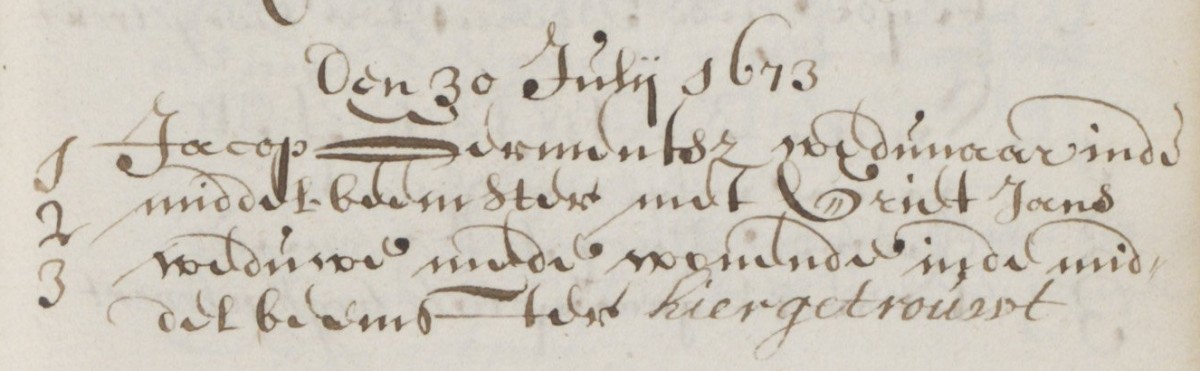 Den 30 Julij 1673
1 Jacop Sermentsz wedunaar inde
2 middelbeemster met Griet Jans
3 weduwe mede wonende inde mid-
delbeemster hier getrouwt